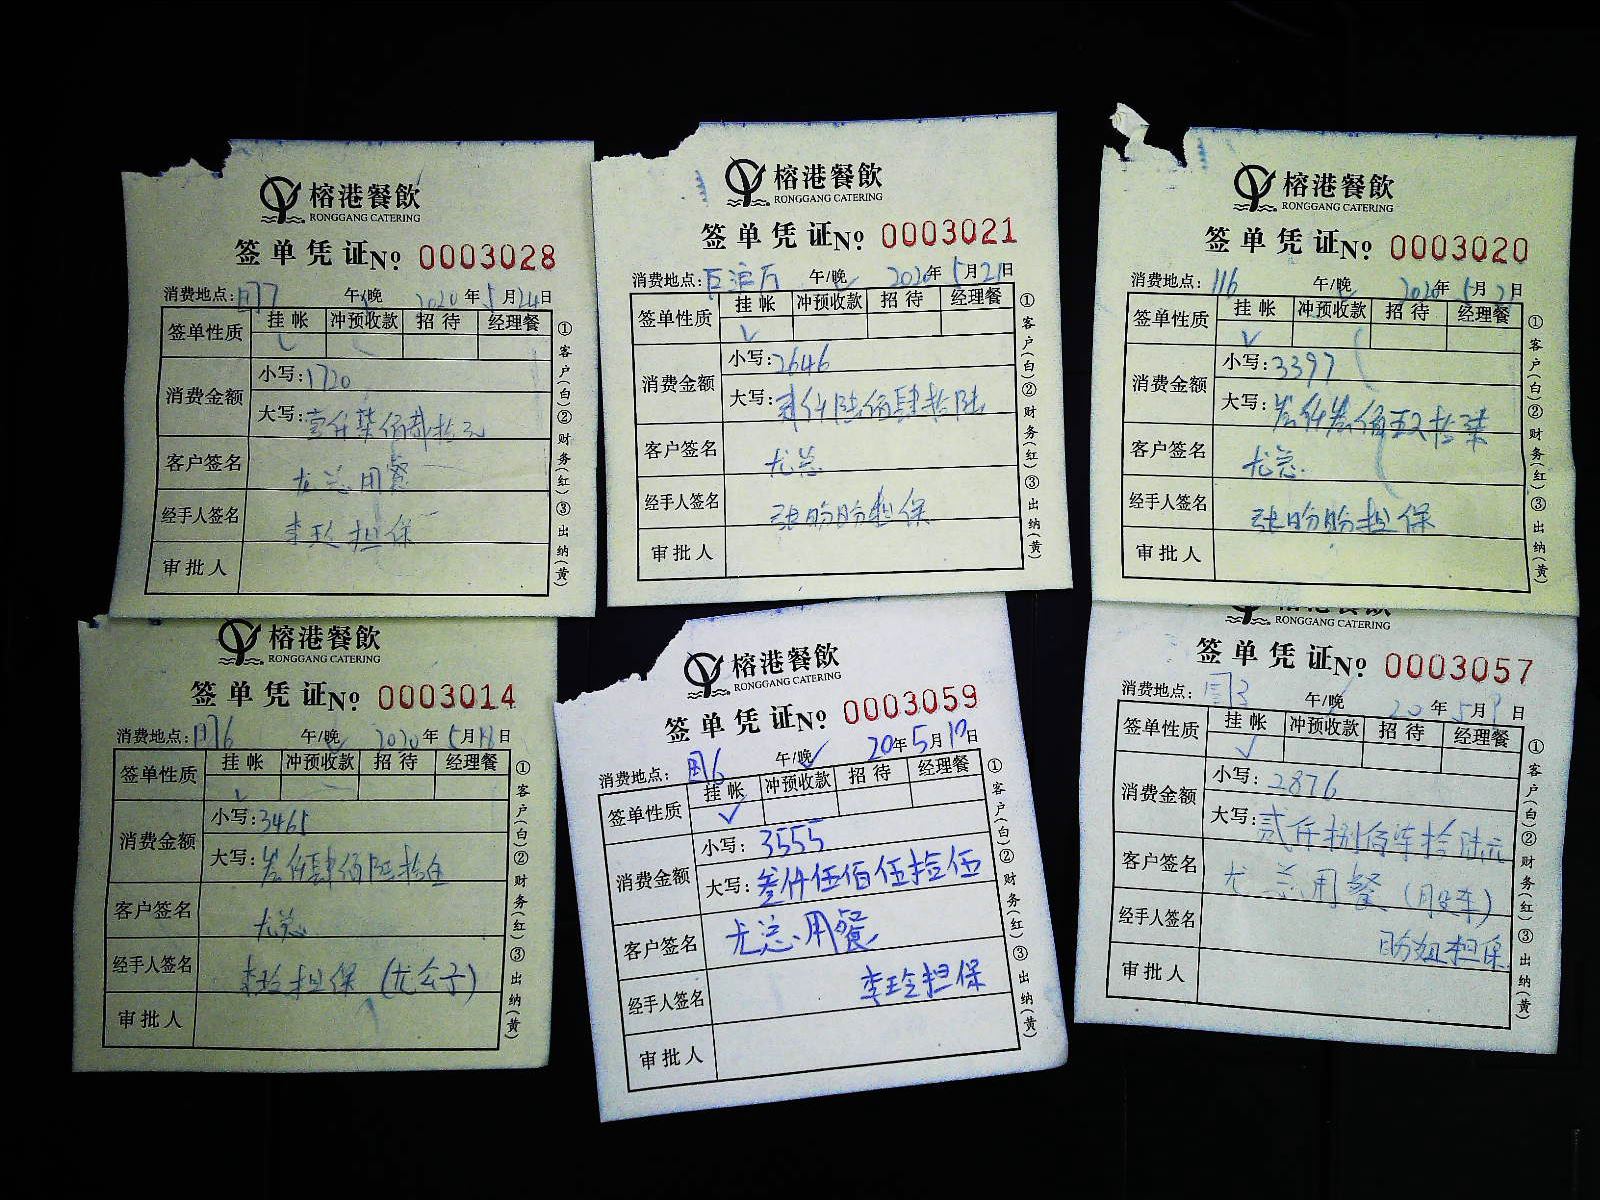 榕港餐飲
RONGGANG CATERING
签单凭证No 0003028
消费地点: 午/晚 2020年5月24日
签单性质 挂帐 冲预收款 招待 经理餐
消费金额 小写:1720
大写:壹仟柒佰贰拾元
客户签名 尤总用餐
经手人签名 李玲担保
审批人
①客户(白)②财务(红)③出纳(黄)
榕港餐飲
RONGGANG CATERING
签单凭证No 0003021
消费地点: 午/晚 2020年5月21日
签单性质 挂帐 冲预收款 招待 经理餐
消费金额 小写:2646
大写:贰仟陆佰肆拾陆
客户签名 尤总
经手人签名 张盼盼担保
审批人
①客户(白)②财务(红)③出纳(黄)
榕港餐飲
RONGGANG CATERING
签单凭证No 0003020
消费地点:116 午/晚 2020年5月21日
签单性质 挂帐 冲预收款 招待 经理餐
消费金额 小写:3397
大写:叁仟叁佰玖拾柒
客户签名 尤总
经手人签名 张盼盼担保
审批人
①客户(白)②财务(红)③出纳(黄)
榕港餐飲
RONGGANG CATERING
签单凭证No 0003014
消费地点: 午/晚 2020年5月18日
签单性质 挂帐 冲预收款 招待 经理餐
消费金额 小写:3465
大写:叁仟肆佰陆拾伍
客户签名 尤总
经手人签名 李玲担保(尤公子)
审批人
①客户(白)②财务(红)③出纳(黄)
榕港餐飲
RONGGANG CATERING
签单凭证No 0003059
消费地点: 午/晚 20年5月10日
签单性质 挂帐 冲预收款 招待 经理餐
消费金额 小写:3555
大写:叁仟伍佰伍拾伍
客户签名 尤总用餐
经手人签名 李玲担保
审批人
①客户(白)②财务(红)③出纳(黄)
榕港餐飲
RONGGANG CATERING
签单凭证No 0003057
消费地点: 午/晚 20年5月9日
签单性质 挂帐 冲预收款 招待 经理餐
消费金额 小写:2876
大写:贰仟捌佰柒拾陆元
客户签名 尤总用餐(股东)
经手人签名 盼姐担保
审批人
①客户(白)②财务(红)③出纳(黄)